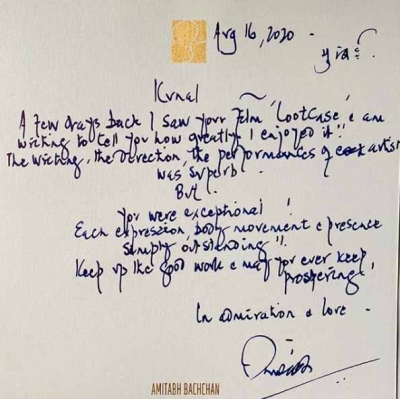 Aug 16, 2020 -
Kunal
A few days back I saw your film 'Lootcase' & am
writing to tell you how greatly I enjoyed it !!
The writing, the direction, the performances of artist
was superb .
But .
you were exceptional !
Each expression, body movement & presence
simply outstanding !!
Keep up the good work & may you ever keep
prospering !
In admiration & love .
AMITABH BACHCHAN